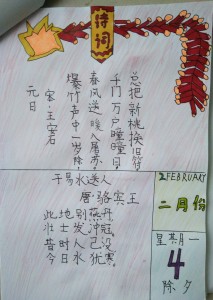 诗词
元日
宋·王安石
爆竹声中一岁除
春风送暖入屠苏
千门万户瞳瞳日
总把新桃换旧符
于易水送人
唐·骆宾王
此地别燕丹,
壮士发冲冠。
昔时人已没,
今日水犹寒。
2 FEBRUARY
二月份
星期一
4
除夕